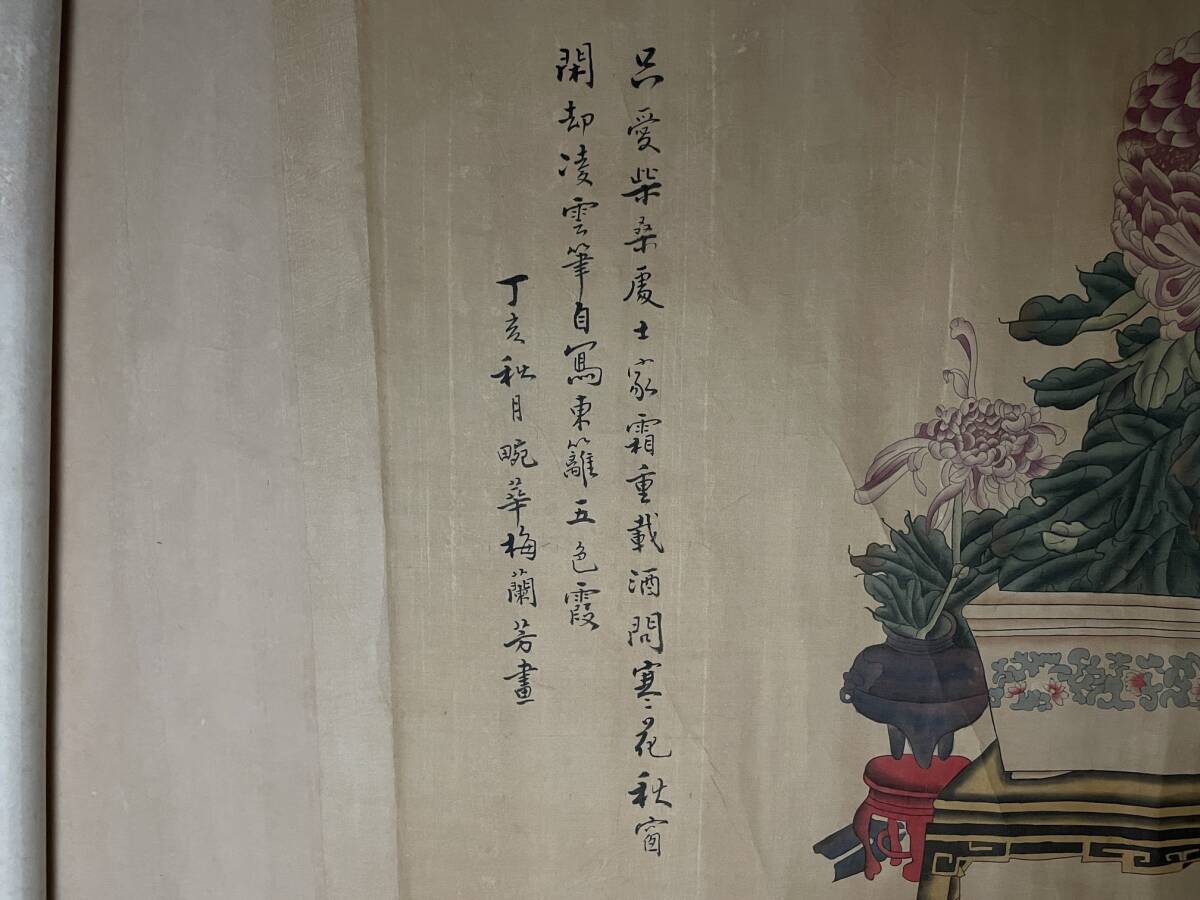 只愛柴桑處士家霜重載酒問寒花秋窗
閑却凌雲筆自寫東籬五色霞
丁亥秋月畹華梅蘭芳畫